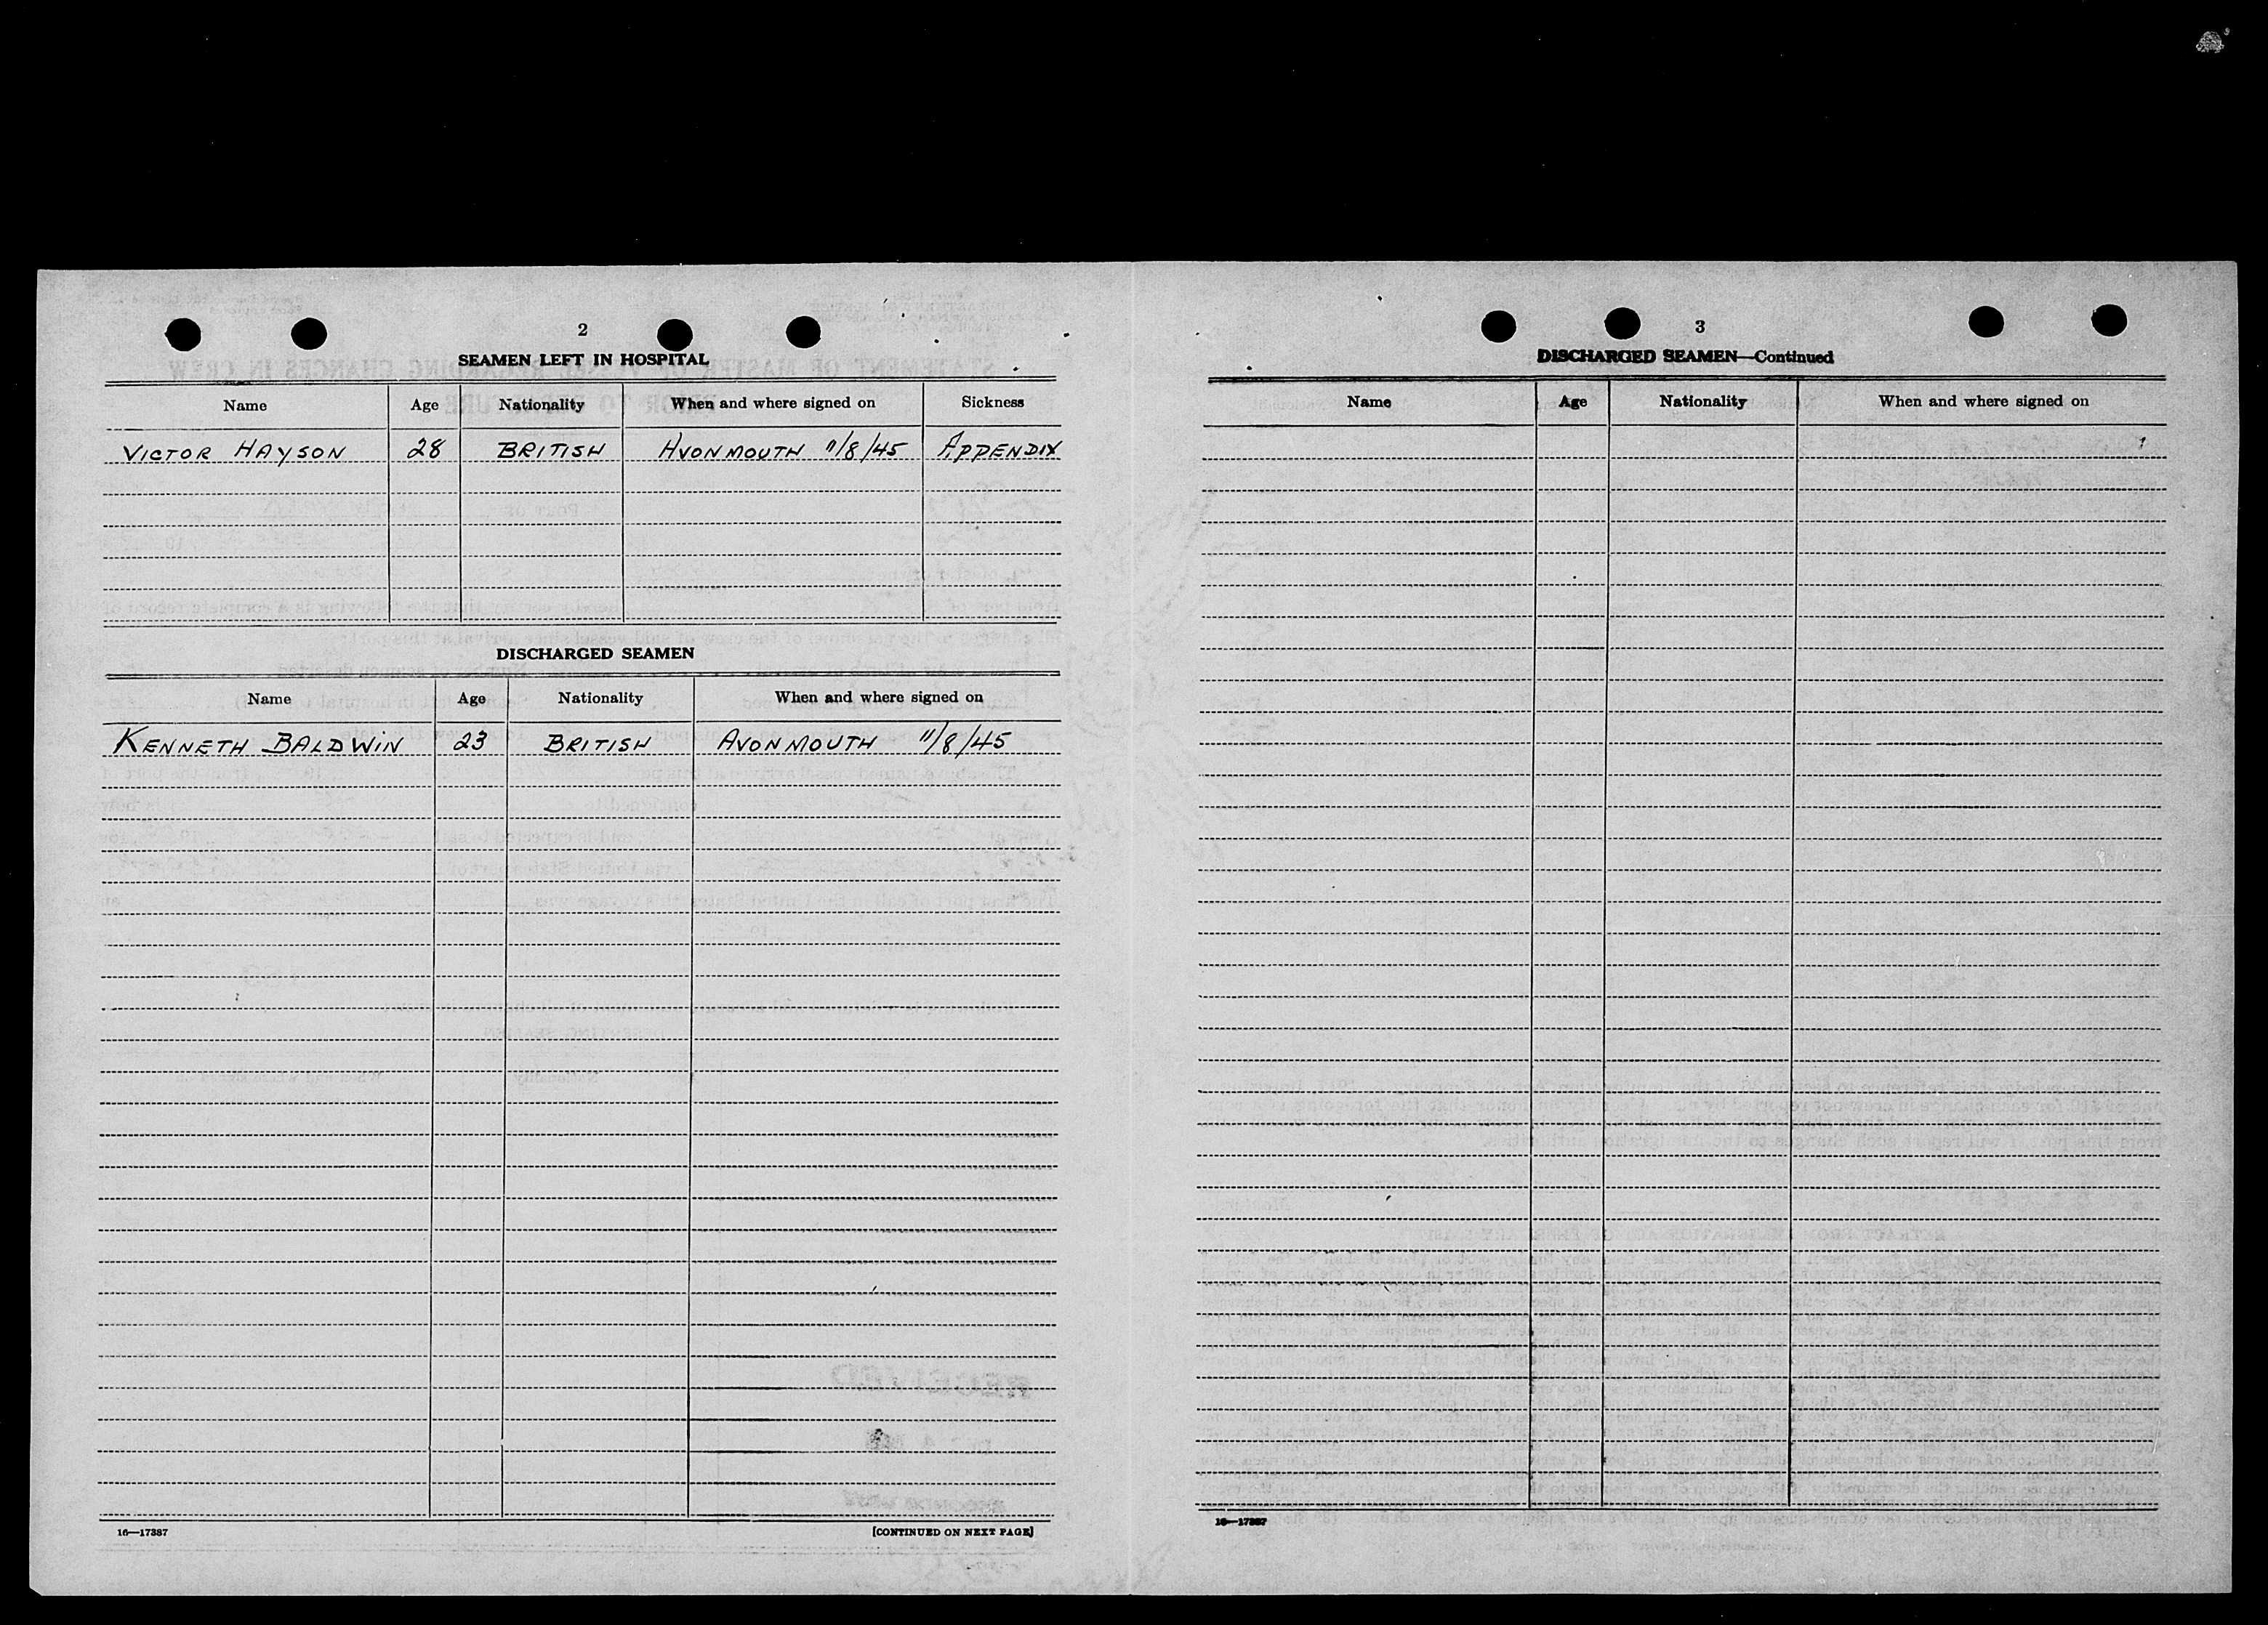 2
SEAMEN LEFT IN HOSPITAL
Name Age Nationality When and where signed on Sickness
VICTOR HAYSON 28 BRITISH AVONMOUTH 11/8/45 APPENDIX
DISCHARGED SEAMEN
Name Age Nationality When and where signed on
KENNETH BALDWIN 23 BRITISH AVONMOUTH 11/8/45
16—17387
[CONTINUED ON NEXT PAGE]
3
DISCHARGED SEAMEN—Continued
Name Age Nationality When and where signed on
16—17387